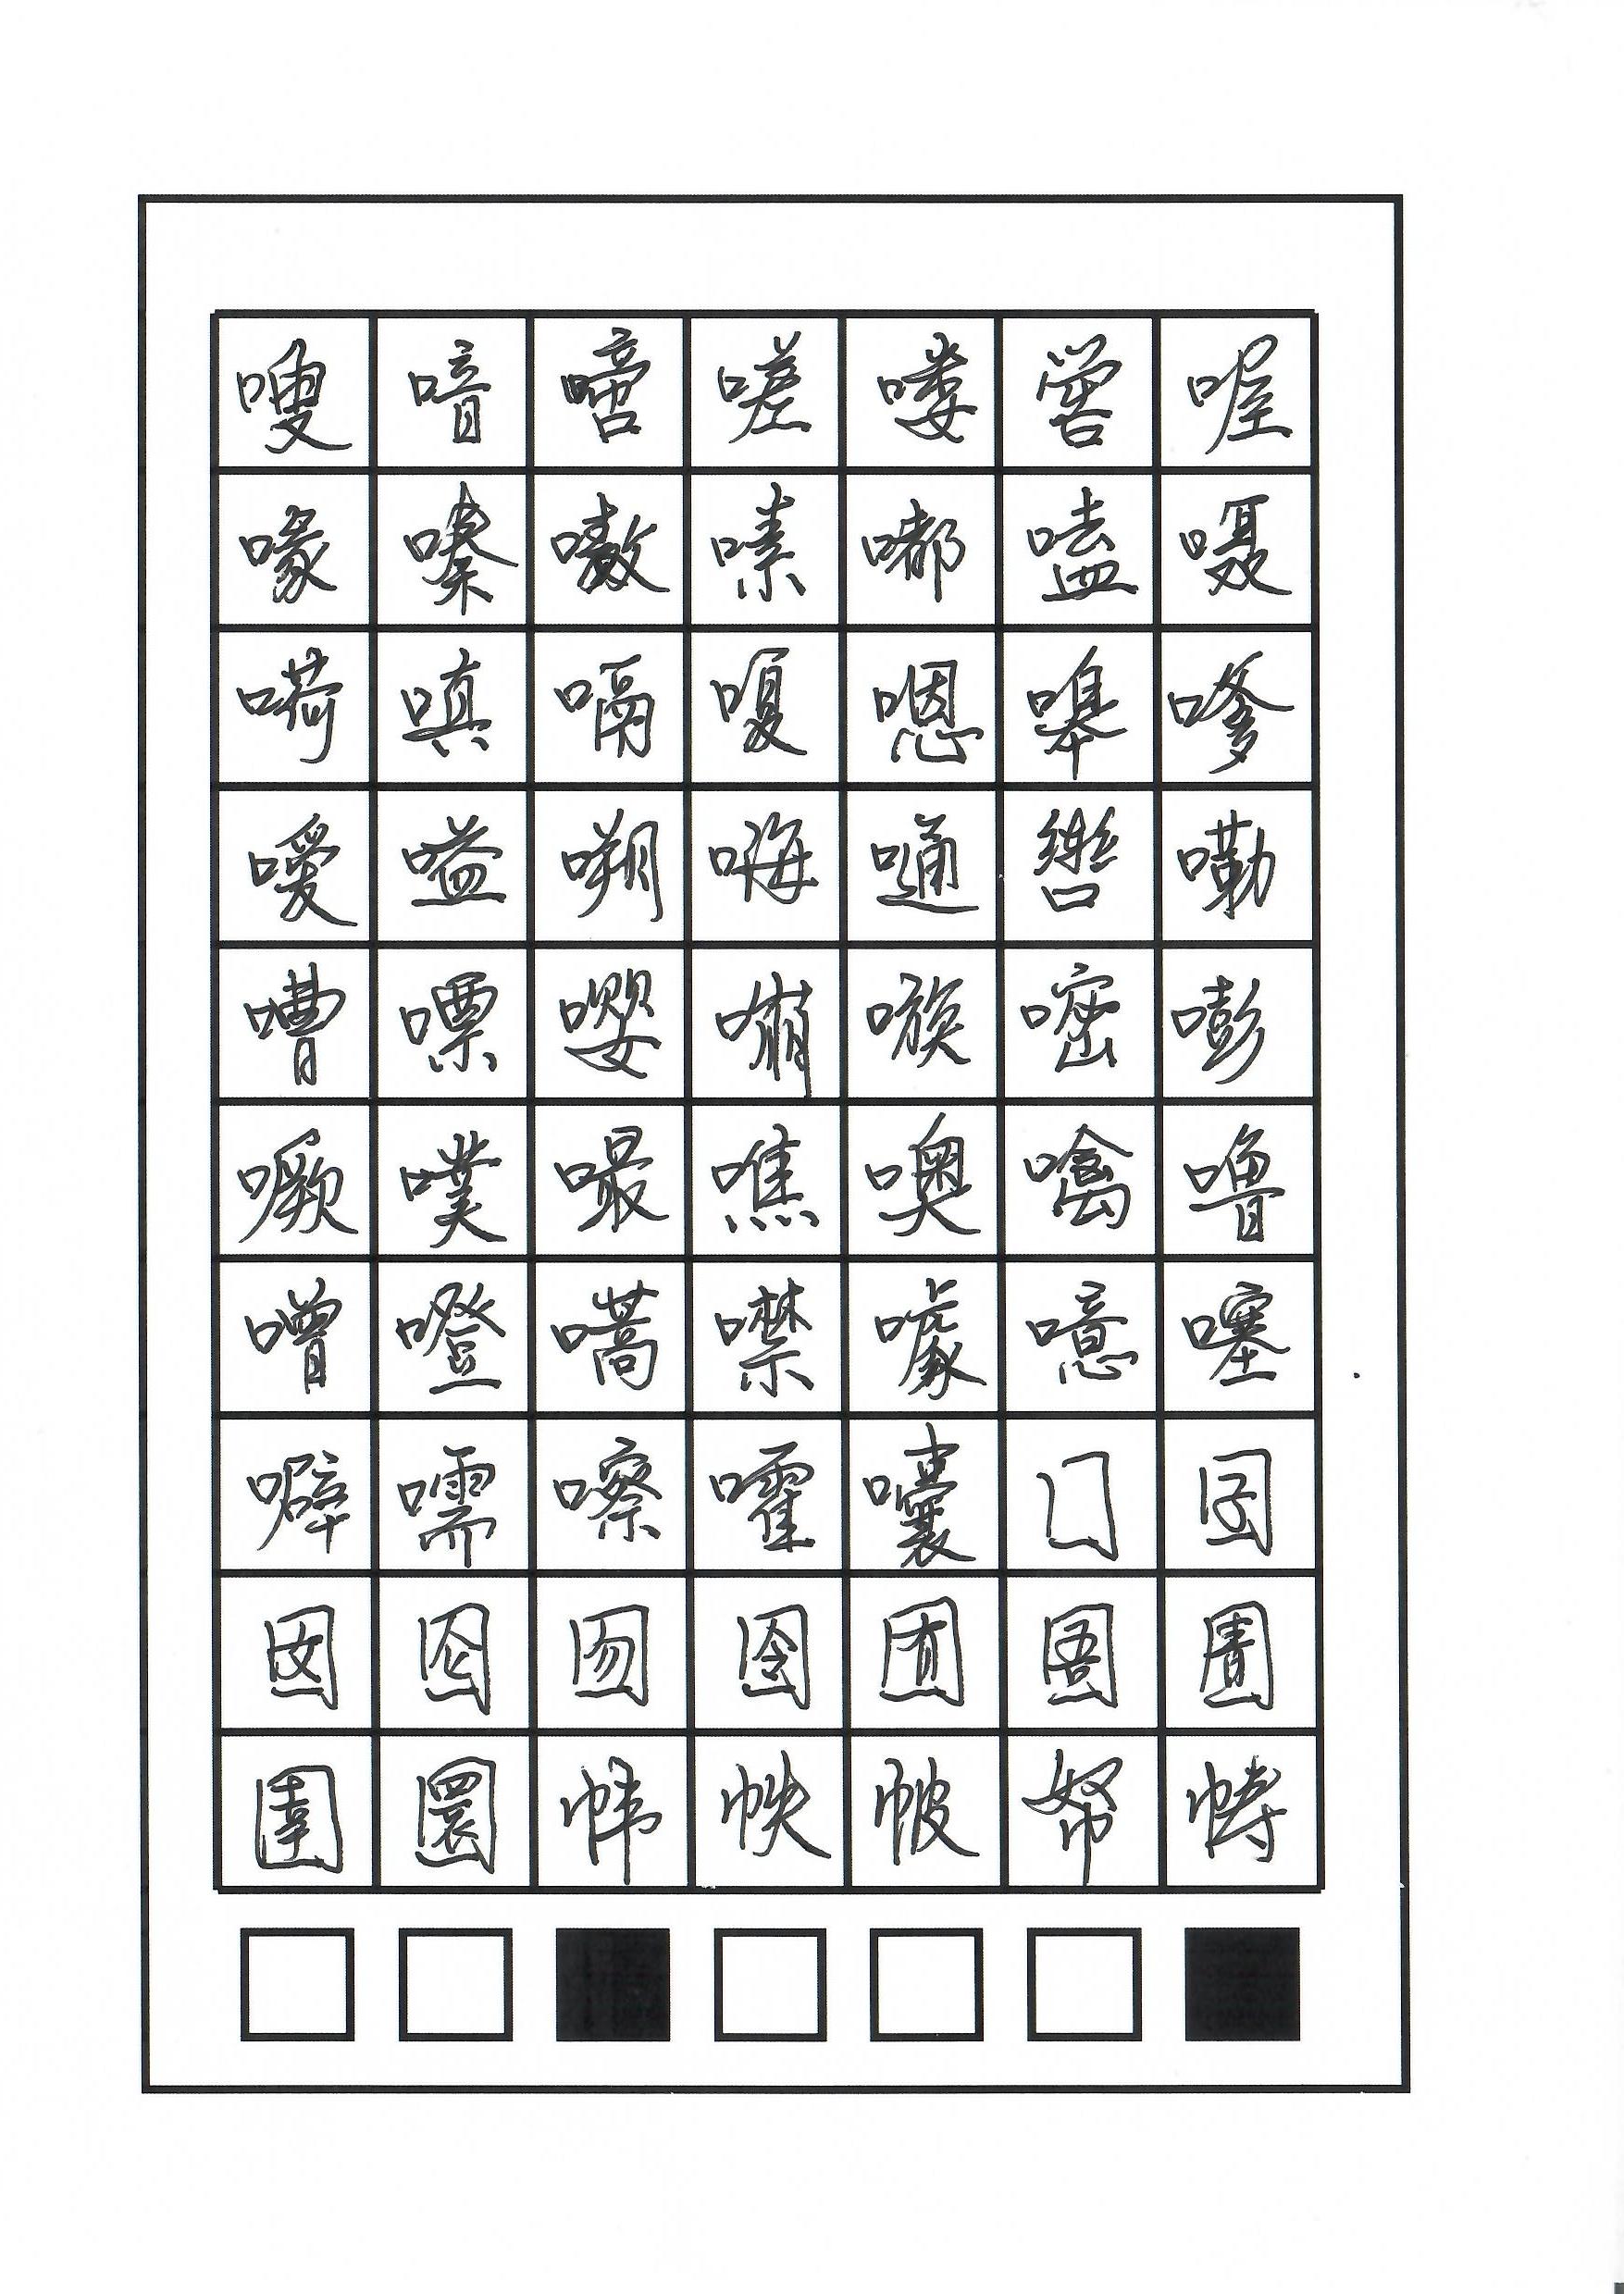 嗖喑啻嗟喽喾喔
喙嗪嗷嗉嘟嗑嗫
嗬嗔嗝嗄嗯嗥嗲
嗳嗌嗍嗨嗵辔嘞
嘈嘌嘤嘣嗾嘧嘭
噘噗嘬噍噢噙噜
噌噔嚆噤噱噫噻
噼嚅嚓嚯囔囗囝
囡囵囫囹囿圄圊
圉圜帏帙帔帑帱